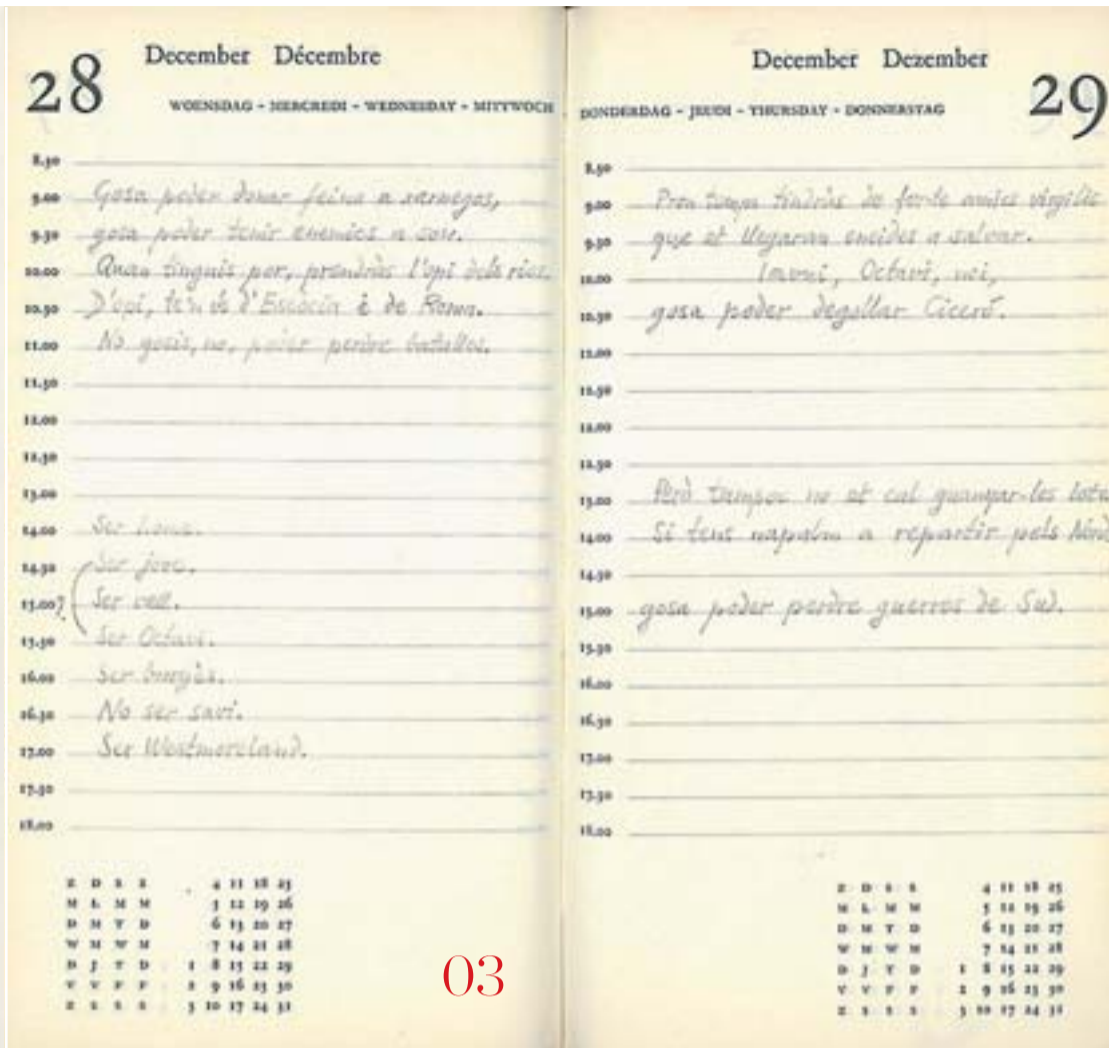 28
December Décembre
WOENSDAG - MERCREDI - WEDNESDAY - MITTWOCH
8.30
9.00 Gosa poder donar feina a xarnegos,
9.30 gosa poder tenir enemics a sou.
10.00 Quan tinguis por, prendràs l'opi dels rics.
10.30 D'opi, ten de d'Escòcia è de Roma.
11.00 No gosis, no, poder perdre batalles.
11.30
12.00
12.30
13.00
14.00 Ser home.
14.30 Ser jove.
15.00 ? Ser vell.
15.30 Ser Octavi.
16.00 Ser burgès.
16.30 No ser savi.
17.00 Ser Westmoreland.
17.30
18.00
Z D S S 4 11 18 25
M L M M 5 12 19 26
D M T D 6 13 20 27
W M W M 7 14 21 28
D J T D 1 8 15 22 29
V V F F 2 9 16 23 30
Z S S S 3 10 17 24 31
03
December Dezember
29
DONDERDAG - JEUDI - THURSDAY - DONNERSTAG
8.30
9.00 Prou temps tindràs de fer-te amics
9.30 que et llegaran eneides a salvar.
10.00 Octavi, noi,
10.30 gosa poder degollar Ciceró.
11.00
11.30
12.00
12.30
13.00 Però tampoc no et cal guanyar-les
14.00 Si tens napalm a repartir pels
14.30
15.00 gosa poder perdre guerres de Sud.
15.30
16.00
16.30
17.00
17.30
18.00
Z D S S 4 11 18 25
M L M M 5 12 19 26
D M T D 6 13 20 27
W M W M 7 14 21 28
D J T D 1 8 15 22 29
V V F F 2 9 16 23 30
Z S S S 3 10 17 24 31